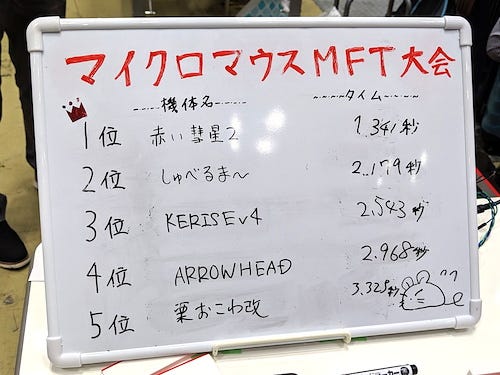 マイクロマウスMFT大会
機体名 タイム
1位 赤い彗星2 1.341秒
2位 しゅべるま〜 2.179秒
3位 KERISEv4 2.543秒
4位 ARROWHEAD 2.968秒
5位 栗おこわ改 3.328秒